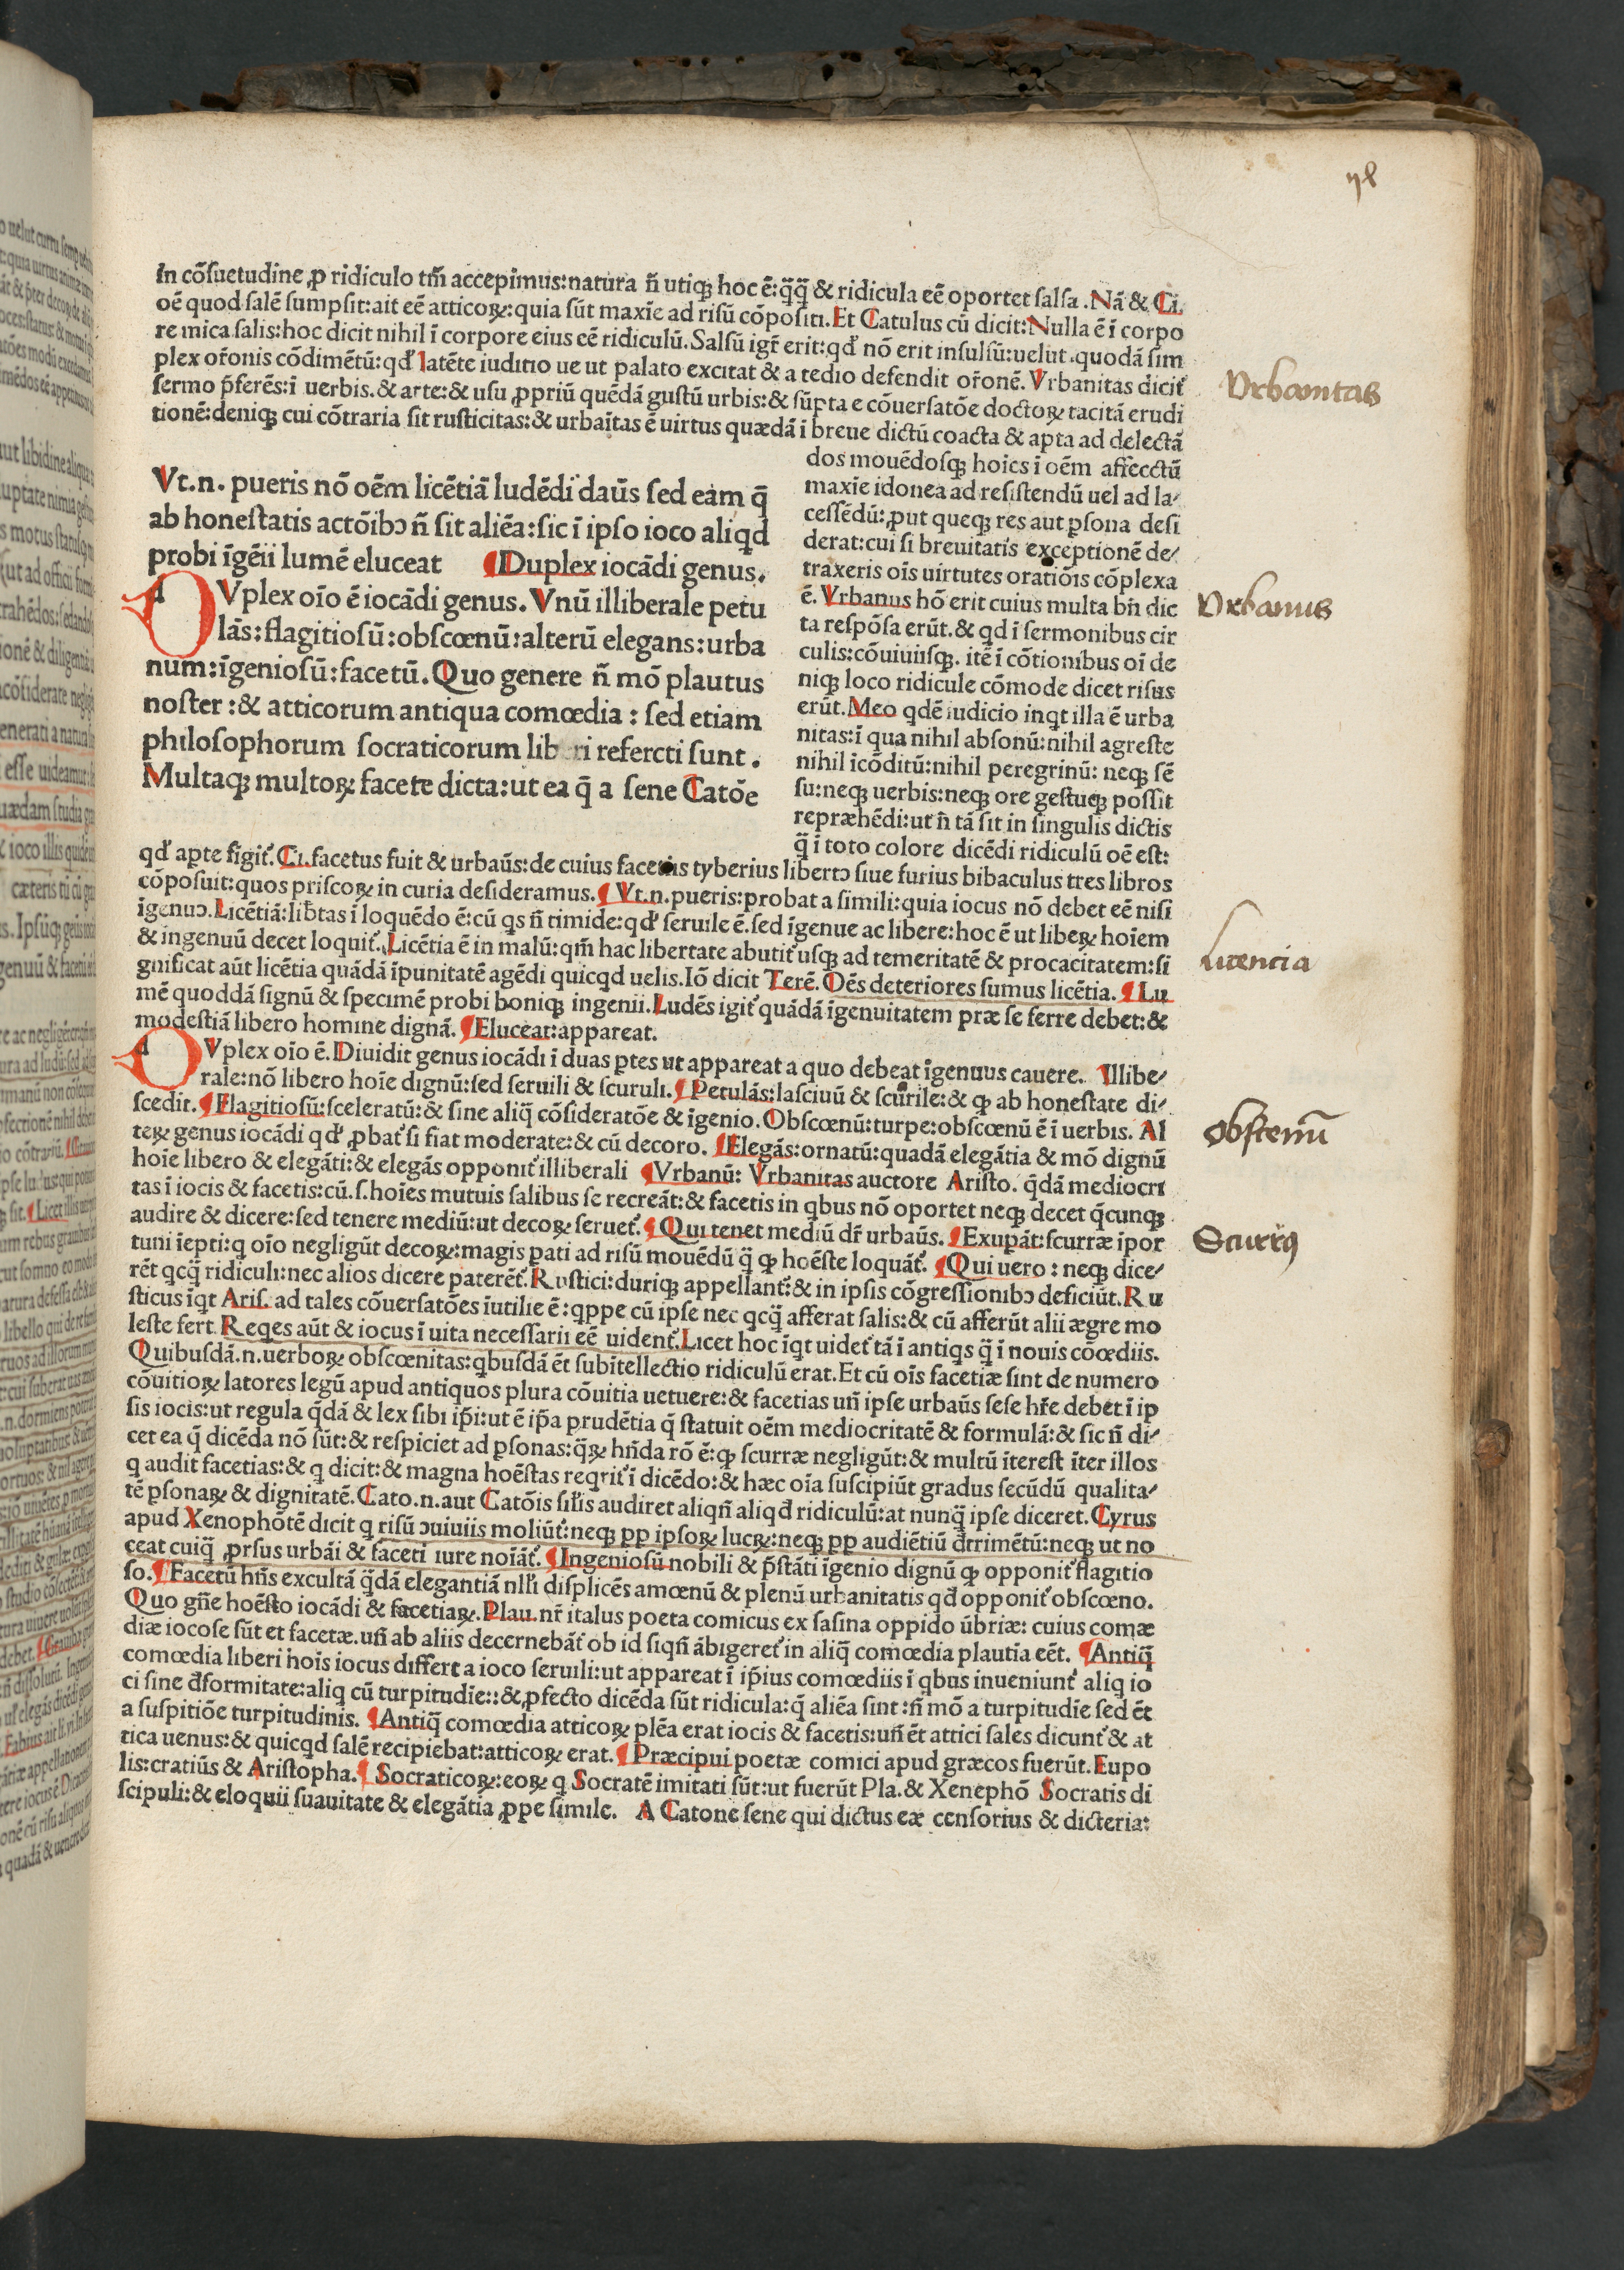 78
In cõſuetudine ꝓ ridiculo tm̃ accepimus:natura ñ utiqꝫ hoc ẽ:q̃q̃ & ridicula eẽ oportet ſalſa .Nã & Ci.
oẽ quod ſalẽ ſumpſit:ait eẽ atticoꝝ:quia ſũt maxĩe ad riſũ cõpoſiti.Et Catulus cũ dicit:Nulla ẽ ĩ corpo
re mica ſalis:hoc dicit nihil ĩ corpore eius eẽ ridiculũ.Salſũ igr̃ erit:qđ nõ erit inſulſũ:uelut .quodã ſim
plex or̃onis cõdimẽtũ:qđ latẽte iuditio ue ut palato excitat & a tedio defendit or̃onẽ. Vrbanitas dicit̃
ſermo p̃ferẽs:ĩ uerbis.& arte:& uſu ꝓpriũ quẽdã guſtũ urbis:& ſũpta e cõuerſatõe doctoꝝ tacitã erudi
tionẽ:deniqꝫ cui cõtraria ſit ruſticitas:& urbaĩtas ẽ uirtus quædã ĩ breue dictũ coacta & apta ad delectã
dos mouẽdoſqꝫ hoĩes ĩ oẽm affecctũ
maxĩe idonea ad reſiſtendũ uel ad la⸗
ceſſẽdũ:ꝓut queqꝫ res aut ꝑſona deſi
derat:cui ſi breuitatis exceptionẽ de⸗
traxeris oĩs uirtutes oratiõis cõplexa
ẽ. Vrbanus hõ erit cuius multa bñ dic
ta reſpõſa erũt.& qd ĩ ſermonibus cir
culis:cõuiuiiſqꝫ. itẽ ĩ cõtionibus oĩ de
niqꝫ loco ridicule cõmode dicet riſus
erũt.Meo qdẽ iudicio inqt illa ẽ urba
nitas:ĩ qua nihil abſonũ:nihil agreſte
nihil ĩcõditũ:nihil peregrinũ: neqꝫ ſẽ
ſu:neqꝫ uerbis:neqꝫ ore geſtuqꝫ poſſit
repræhẽdi:ut ñ tã ſit in ſingulis dictis
q̃ ĩ toto colore dicẽdi ridiculũ oẽ eſt:
Vt.n. pueris nõ oẽm licẽtiã ludẽdi daũs ſed eam q̃
ab honeſtatis actõibꝰ ñ ſit aliẽa:ſic ĩ ipſo ioco aliqd
probi ĩgẽii lumẽ eluceat ¶Duplex iocãdi genus.
dVplex oĩo ẽ iocãdi genus. Vnũ illiberale petu
lãs:flagitioſũ:obſcœnũ:alterũ elegans:urba
num:ĩgenioſũ:facetũ.Quo genere ñ mõ plautus
noſter :& atticorum antiqua comœdia : ſed etiam
philoſophorum ſocraticorum lib ri refercti ſunt .
Multaqꝫ multoꝝ facete dicta:ut ea q̃ a ſene Catõe
qđ apte fĩgit̃.Ci.facetus fuit & urbaũs:de cuius facetiis tyberius libertꝰ ſiue furius bibaculus tres libros
cõpoſuit:quos priſcoꝝ in curia deſideramus.¶Vt.n.pueris:probat a ſimili:quia iocus nõ debet eẽ niſi
ĩgenuꝰ.Licẽtiã:lib̃tas ĩ loquẽdo ẽ:cũ qs ñ timide:qđ ſeruile ẽ.ſed ĩgenue ac libere:hoc ẽ ut libeꝝ hoĩem
& ingenuũ decet loquit̃.Licẽtia ẽ in malũ:qm̃ hac libertate abutit̃ uſqꝫ ad temeritatẽ & procacitatem:ſi
gnificat aũt licẽtia quãdã ĩpunitatẽ agẽdi quicqd uelis.Iõ dicit Terẽ. Oẽs deteriores ſumus licẽtia. ¶Lu
mẽ quoddã ſignũ & ſpecimẽ probi boniqꝫ ingenii.Ludẽs igit̃ quãdã ĩgenuitatem præ ſe ferre debet:&
modeſtiã libero homine dignã. ¶Eluceat:appareat.
dVplex oĩo ẽ.Diuidit genus iocãdi ĩ duas ꝑtes ut appareat a quo debeat ĩgenuus cauere. Illibe⸗
rale:nõ libero hoĩe dignũ:ſed ſeruili & ſcuruli.¶Petulãs:laſciuũ & ſcurile:& ꝙ ab honeſtate di⸗
ſcedit.¶Flagitioſũ:ſceleratũ:& ſine aliq̃ cõſideratõe & ĩgenio.Obſcœnũ:turpe:obſcœnũ ẽ ĩ uerbis. Al
teꝝ genus iocãdi qđ ꝓbat̃ ſi fiat moderate:& cũ decoro. ¶Elegãs:ornatũ:quadã elegãtia & mõ dignũ
hoĩe libero & elegãti:& elegãs opponit̃ illiberali ¶Vrbanũ: Vrbanitas auctore Ariſto. q̃dã mediocri
tas ĩ iocis & facetis:cũ.ſ.hoĩes mutuis ſalibus ſe recreãt:& facetis in qbus nõ oportet neqꝫ decet q̃cunqꝫ
audire & dicere:ſed tenere mediũ:ut decoꝝ ſeruet̃.¶Qui tenet mediũ dr̃ urbaũs.¶Exupãt:ſcurræ ĩpor
tuni ĩepti:q oĩo negligũt decoꝝ:magis ꝑati ad riſũ mouẽdũ q̃ ꝙ hoẽſte loquãt̃. ¶Qui uero : neqꝫ dice⸗
rẽt qcq̃ ridiculi:nec alios dicere paterẽt̃.Ruſtici:duriqꝫ appellant̃:& in ipſis cõgreſſionibꝰ deficiũt.Ru
ſticus ĩqt Ariſ. ad tales cõuerſatões ĩutilie ẽ:qppe cũ ipſe nec qcq̃ afferat ſalis:& cũ afferũt alii ægre mo
leſte fert.Reqes aũt & iocus ĩ uita neceſſarii eẽ uident̃.Licet hoc ĩqt uidet̃ tã ĩ antiqs q̃ ĩ nouis cõœdiis.
Quibuſdã.n.uerboꝝ obſcœnitas:qbuſdã ẽt ſubĩtellectio ridiculũ erat.Et cũ oĩs facetiæ ſint de numero
cõuitioꝝ latores legũ apud antiquos plura cõuitia uetuere:& facetias uñ ipſe urbaũs ſeſe hr̃e debet ĩ ip
ſis iocis:ut regula q̃dã & lex ſibi ip̃i:ut ẽ ip̃a prudẽtia q̃ ſtatuit oẽm mediocritatẽ & formulã:& ſic ñ di⸗
cet ea q̃ dicẽda nõ ſũt:& reſpiciet ad ꝑſonas:q̃ꝝ hñda rõ ẽ:ꝙ ſcurræ negligũt:& multũ ĩtereſt ĩter illos
q audit facetias:& q dicit:& magna hoẽſtas reqrit̃ ĩ dicẽdo:& hæc oĩa ſuſcipiũt gradus ſecũdũ qualita⸗
tẽ ꝑſonaꝝ & dignitatẽ.Cato.n.aut Catõis ſil̃is audiret aliqñ aliqđ ridiculũ:at nunq̃ ipſe diceret.Cyrus
apud Xenophõtẽ dicit q riſũ ɔuiuiis moliũt̃:neqꝫ ꝓp ipſoꝝ lucꝝ:neqꝫ ꝓp audiẽtiũ đtrimẽtũ:neqꝫ ut no
ceat cuiq̃ ꝓrſus urbãi & faceti iure noĩãt̃. ¶Ingenioſũ nobili & p̃ſtãti ĩgenio dignũ ꝙ opponit̃ flagitio
ſo.¶Facetũ hñs excultã q̃dã elegantiã nl̃li diſplicẽs amœnũ & plenũ urbanitatis qđ opponit̃ obſcœno.
Quo gñe hoẽſto iocãdi & facetiaꝝ.Plau.nr̃ italus poeta comicus ex ſaſina oppido ũbriæ: cuius comæ
diæ iocoſe ſũt et facetæ.uñ ab aliis decernebãt̃ ob id ſiqñ ãbigeret̃ in aliq̃ comœdia plautĩa eẽt. ¶Antiq̃
comœdia liberi hoĩs iocus differt a ioco ſeruili:ut appareat ĩ ip̃ius comœdiis ĩ qbus inueniunt̃ aliq io
ci ſine đformitate:aliq cũ turpitudĩe::& ꝓfecto dicẽda ſũt ridicula:q̃ aliẽa ſint :ñ mõ a turpitudĩe ſed ẽt
a ſuſpitiõe turpitudinis. ¶Antiq̃ comœdia atticoꝝ plẽa erat iocis & facetis:uñ ẽt attici ſales dicunt̃ & at
tica uenus:& quicqd ſalẽ recipiebat:atticoꝝ erat.¶Præcipui poetæ comici apud græcos fuerũt.Eupo
lis:cratiũs & Ariſtopha.¶Socraticoꝝ:eoꝝ q Socratẽ imitati ſũt:ut fuerũt Pla.& Xenephõ Socratis di
ſcipuli:& eloquii ſuauitate & elegãtia ꝓpe ſimile. A Catone ſene qui dictus eæ cenſorius & dicteria:
Vrbanitas
Vrbanus
Licencia
obſcenũ
Scurrꝰ